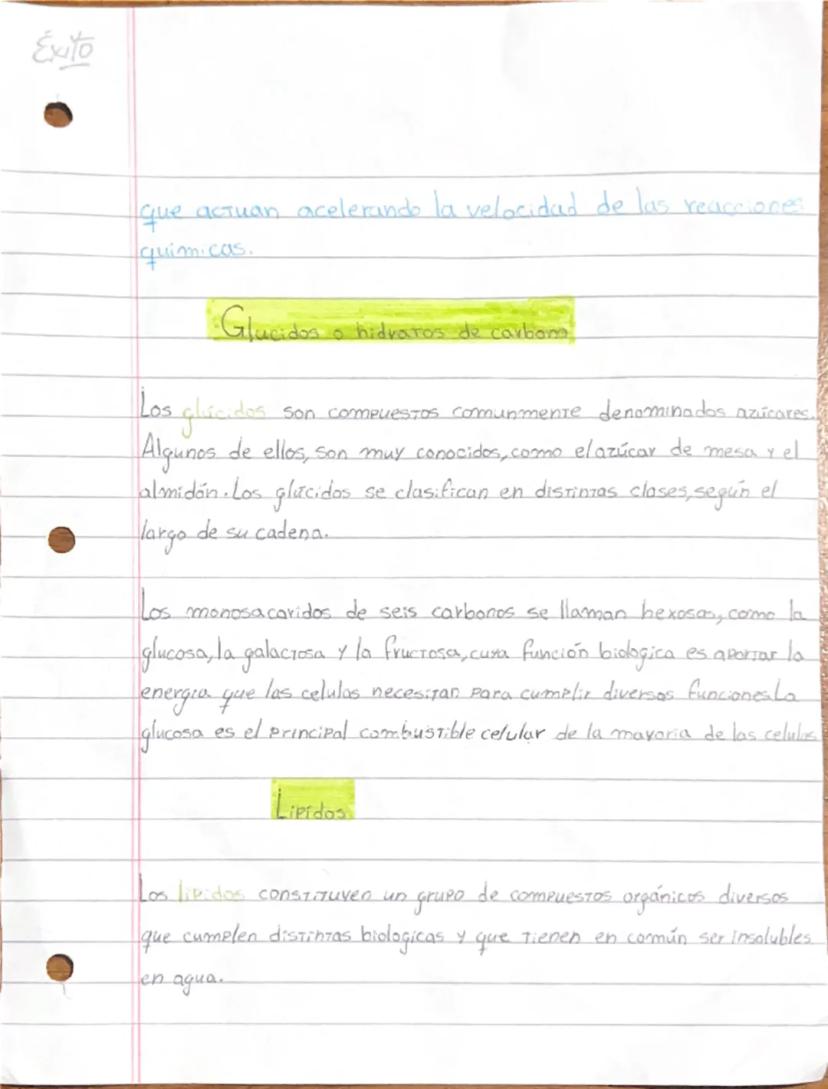 Éxito
que actuan acelerando la velocidad de las reacciones
quimicas.
Glucidos o hidratos de carbono
Los glúcidos son compuestos comunmente denominados azúcares.
Algunos de ellos, son muy conocidos, como el azúcar de mesa y el
almidón. Los glúcidos se clasifican en distintas clases, según el
largo de su cadena.
Los monosacaridos de seis carbonos se llaman hexosas, como la
glucosa, la galactosa y la fructosa, cuya función biologica es aportar la
energía que las celulas necesitan para cumplir diversas funciones. La
glucosa es el principal combustible celular de la mayoria de las celulas
Lipidos
Los lipidos constituyen un grupo de compuestos orgánicos diversos
que cumplen distintas biologicas y que tienen en común ser insolubles
en agua.